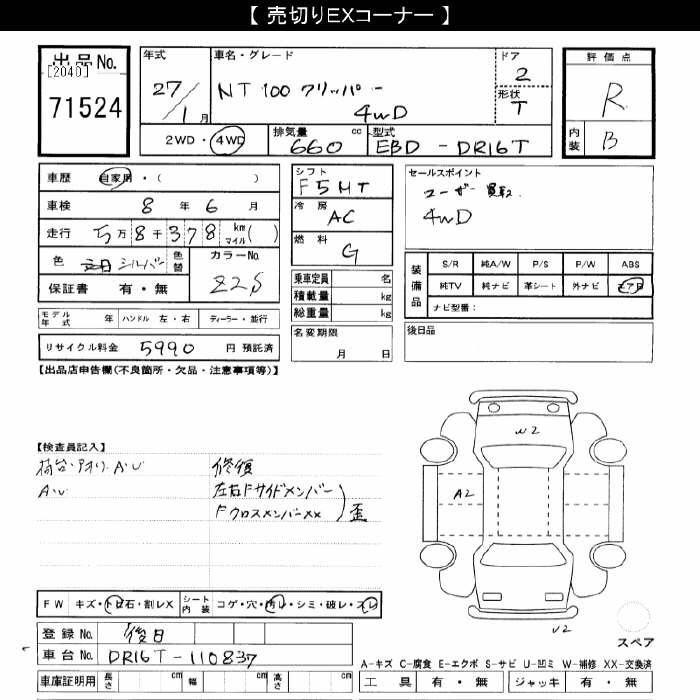 【 売切りEXコーナー 】
出品No.
[2040]
71524
年式
27/1月
車名・グレード
NT100 クリッパー
4WD
ドア
2
形状
T
評価点
R
内装 B
2WD・4WD
排気量 660 cc
型式 EBD - DR16T
車歴 自家用・( )
車検 8 年 6 月
走行 5万8千378 km マイル( )
色 シルバー 色替
カラーNo. Z2S
保証書 有・無
シフト
F5MT
冷房
AC
燃料
G
乗車定員 名
積載量 kg
総重量 kg
名変期限
月 日
セールスポイント
ユーザー買取
4WD
装備品
S/R 純A/W P/S P/W ABS
純TV 純ナビ 革シート 外ナビ エアB
ナビ型番：
後日品
モデル年式 年 ハンドル 左・右 ディーラー・並行
リサイクル料金 5990 円 預託済
【出品店申告欄(不良箇所・欠品・注意事項等)】
【検査員記入】
荷台・アオリ A・U
A・U
修復
左右Fサイドメンバー
Fクロスメンバーxx
歪
W2
A2
U2
スペア
FW キズ・トビ石・割レX シート内装 コゲ・穴・汚レ・シミ・破レ・スレ
登録No. 後日
車台No. DR16T-110837
車庫証明用 長さ cm 幅 cm 高さ cm
A-キズ C-腐食 E-エクボ S-サビ U-凹ミ W-補修 XX-交換済
工具 有・無 ジャッキ 有・無